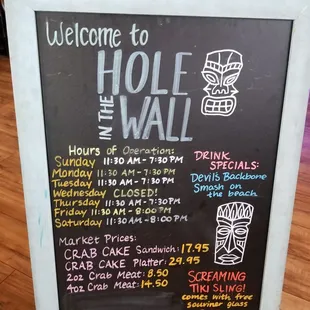 Welcome to
HOLE
IN THE
WALL
Hours of Operation:
Sunday 11:30 AM - 7:30 PM
Monday 11:30 AM - 7:30 PM
Tuesday 11:30 AM - 7:30 PM
Wednesday CLOSED!
Thursday 11:30 AM - 7:30 PM
Friday 11:30 AM - 8:00 PM
Saturday 11:30 AM - 8:00 PM
Market Prices:
CRAB CAKE Sandwich: 17.95
CRAB CAKE Platter: 29.95
2oz Crab Meat: 8.50
4oz Crab Meat: 14.50
DRINK
SPECIALS:
Devils Backbone
Smash on
the beach
SCREAMING
TIKI SLING!
comes with free
souriner glass